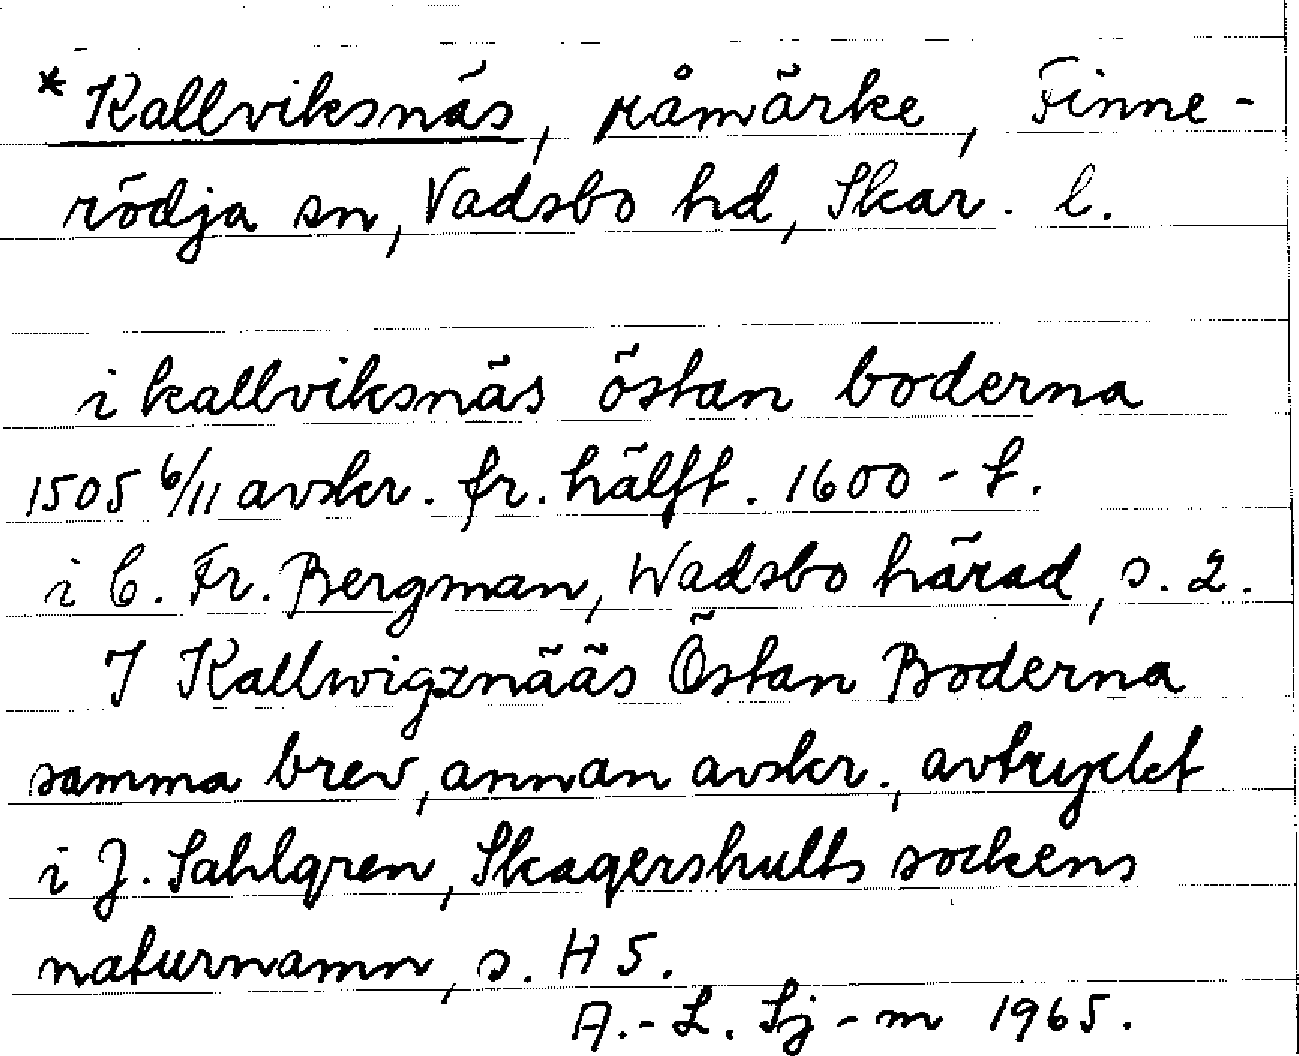 * Kallviksnäs, råmärke, Finne-
rödja sn, Vadsbo hd, Skar. l.
i kallviksnäs östan boderna
1505 6/11 avskr. fr. hälft. 1600-t.
i C. Fr. Bergman, Wadsbo härad, s. 2.
I Kallwigznääs Östan Boderna
samma brev, annan avskr., avtryckt
i J. Sahlgren, Skagershults sockens
naturnamn, s. H 5.
A.-L. Sj-m 1965.